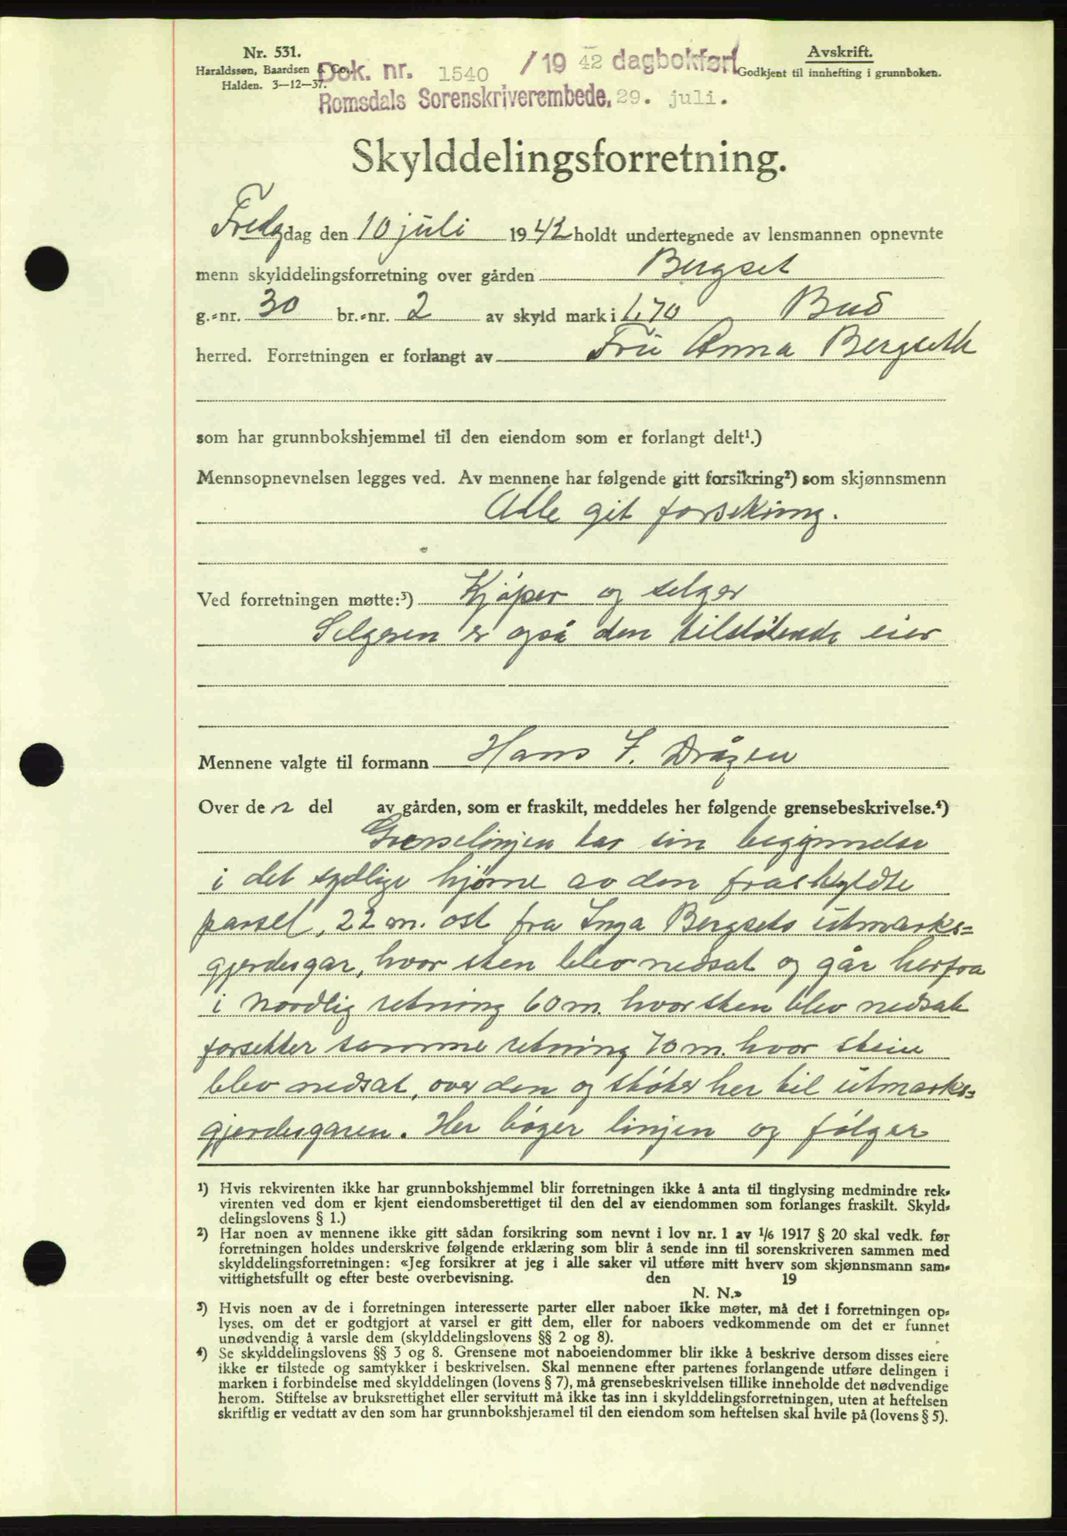 Nr. 531.
Haraldssøn, Baardsen & Co.
Halden. 3—12—37.
Dok. nr. 1540 /19 42 dagbokført
Romsdals Sorenskriverembede, 29. juli.
Avskrift.
Godkjent til innhefting i grunnboken.
Skylddelingsforretning.
Fredagdag den 10 juli 1942 holdt undertegnede av lensmannen opnevnte
menn skylddelingsforretning over gården Bergset
g.-nr. 30 br.-nr. 2 av skyld mark i 1,70 Bud
herred. Forretningen er forlangt av Fru Anna Bergseth
som har grunnbokshjemmel til den eiendom som er forlangt delt¹.)
Mennsopnevnelsen legges ved. Av mennene har følgende gitt forsikring²) som skjønnsmenn
Alle git forsikring.
Ved forretningen møtte:³) Kjøper og selger
Selgeren er også den tilstøtende eier
Mennene valgte til formann Hans F. Drågen
Over de n del av gården, som er fraskilt, meddeles her følgende grensebeskrivelse.⁴)
Grenselinjen tar sin begynnelse
i det sydlige hjørne av den fraskyldte
parsel, 22 m. ost fra Inga Bergsets utmarks-
gjerdesgar, hvor sten blev nedsat og går herfra
i nordlig retning 60 m. hvor sten blev nedsat
forsetter samme retning 70 m. hvor stein
blev nedsat, over den og støter her til utmarks-
gjerdesgaren. Her bøger linjen og følger
¹) Hvis rekvirenten ikke har grunnbokshjemmel blir forretningen ikke å anta til tinglysing medmindre rek-
virenten ved dom er kjent eiendomsberettiget til den del av eiendommen som forlanges fraskilt. Skyld-
delingslovens § 1.)
²) Har noen av mennene ikke gitt sådan forsikring som nevnt i lov nr. 1 av ¹/₆ 1917 § 20 skal vedk. før
forretningen holdes underskrive følgende erklæring som blir å sende inn til sorenskriveren sammen med
skylddelingsforretningen: «Jeg forsikrer at jeg i alle saker vil utføre mitt hverv som skjønnsmann sam-
vittighetsfullt og efter beste overbevisning. den 19
N. N.»
³) Hvis noen av de i forretningen interesserte parter eller naboer ikke møter, må det i forretningen op-
lyses. om det er godtgjort at varsel er gitt dem, eller for naboers vedkommende om det er funnet
unødvendig å varsle dem (skylddelingslovens §§ 2 og 8).
⁴) Se skylddelingslovens §§ 3 og 8. Grensene mot naboeiendommer blir ikke å beskrive dersom disses eiere
ikke er tilstede og samtykker i beskrivelsen. Skal mennene efter partenes forlangende utføre delingen i
marken i forbindelse med skylddelingen (lovens § 7), må grensebeskrivelsen tillike inneholde det nødvendige
herom. Stiftelse av bruksrettighet eller servitutt må ikke tas inn i skylddelingsforretningen, uten at heftelsen
skriftlig er vedtatt av den som har grunnbokshjemmel til den eiendom som heftelsen skal hvile på (lovens § 5).